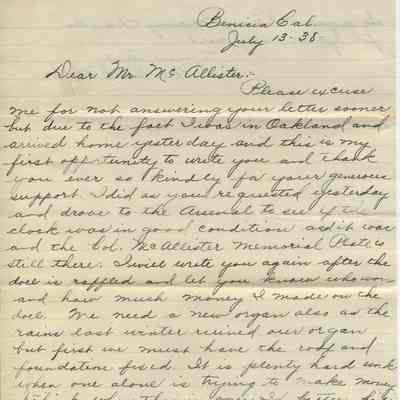 Benicia Cal.
July 13-38
Dear Mr. McAllister:-
Please excuse
me for not answering your letter sooner
but due to the fact I was in Oakland and
arrived home yesterday and this is my
first opportunity to write you and thank
you ever so kindly for your generous
support. I did as you requested yesterday
and drove to the Arsenal to see if the
clock was in good condition and it was
and the Col. McAllister Memorial Plate is
still there. I will write you again after the
doll is raffled and let you know who won
and how much money I made on the
doll. We need a new organ also as the
rains last winter ruined our organ
but first we must have the roof and
foundation fixed. It is plenty hard work
when one alone is trying to make money